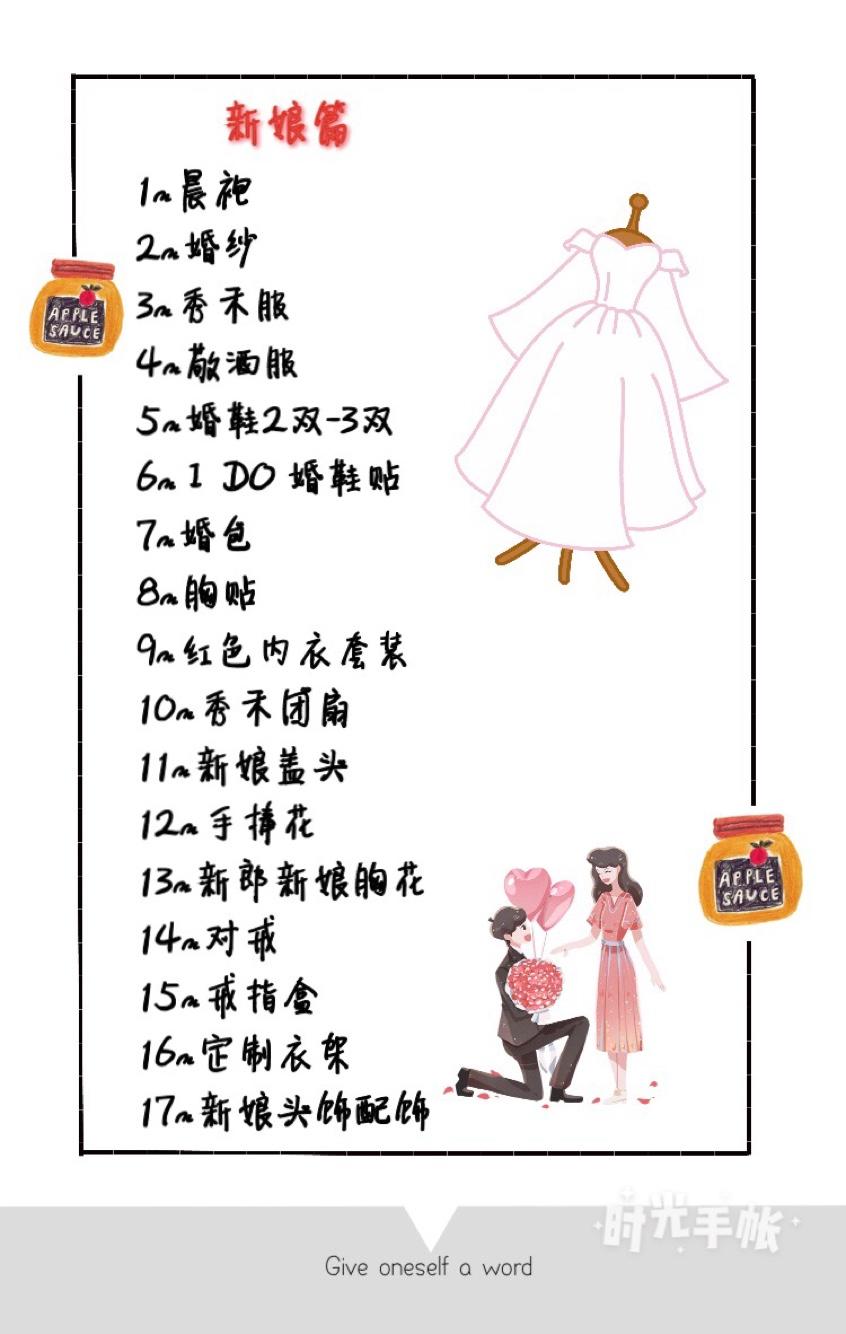 新娘篇
1~晨袍
2~婚纱
3~秀禾服
4~敬酒服
5~婚鞋2双-3双
6~I DO 婚鞋贴
7~婚包
8~胸贴
9~红色内衣套装
10~秀禾团扇
11~新娘盖头
12~手捧花
13~新郎新娘胸花
14~对戒
15~戒指盒
16~定制衣架
17~新娘头饰配饰
APPLE
SAUCE
APPLE
SAUCE
时光手帐
Give oneself a word